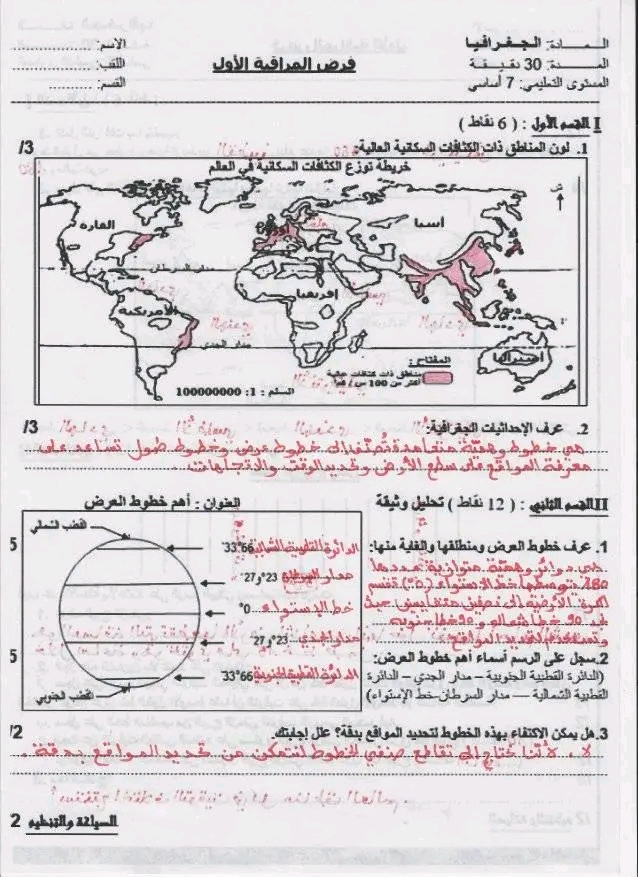 المــــادة: الجـغـرافـيـا
المــــدة: 30 دقـيـقـة
المستوى التعليمي: 7 أساسي
فرض المراقبة الأول
الاسم:
اللقب:
القسم:
I القسم الأول : ( 6 نقاط )
1. لون المناطق ذات الكثافات السكانية العالية:
/3
خريطة توزع الكثافات السكانية في العالم
القارة
الأمريكية
أوروبا
آسيا
إفريقيا
أستراليا
مدار السرطان
مدار الجدي
المفتاح:
مناطق ذات كثافات عالية
أكثر من 100 س / كم²
السلم : 1: 100000000
2. عرف الإحداثيات الجغرافية:
/3
هي خطوط وهميّة متعامدة تُصنّف إلى خطوط عرض وخطوط طول تساعد على
معرفة المواقع على سطح الأرض وتحديد الوقت والاتجاهات.
II القسم الثاني : ( 12 نقاط ) تحليل وثيقة
العنوان : أهم خطوط العرض
القطب الشمالي
الدائرة القطبية الشمالية 66°33
مدار السرطان 23°و27
خط الإستواء 0°
مدار الجدي 23°و27
الدائرة القطبية الجنوبية 66°33
القطب الجنوبي
5
5
1. عرف خطوط العرض ومنطلقها والغاية منها:
هي دوائر وهميّة متوازية عددها
180 يتوسطها خط الإستواء (0°) تقسم
الكرة الأرضية إلى نصفين متقايسين حيث
نجد 90 خطا شمالا و 90 خطا جنوبا
وتساعد على تحديد المواقع
2. سجل على الرسم أسماء أهم خطوط العرض:
(الدائرة القطبية الجنوبية – مدار الجدي – الدائرة
القطبية الشمالية – مدار السرطان-خط الإستواء)
3. هل يمكن الاكتفاء بهذه الخطوط لتحديد المواقع بدقة؟ علل إجابتك.
/2
لا، لأننا نحتاج إلى تقاطع صنفي الخطوط لنتمكن من تحديد المواقع بدقة.
الصياغة والتنظيم 2